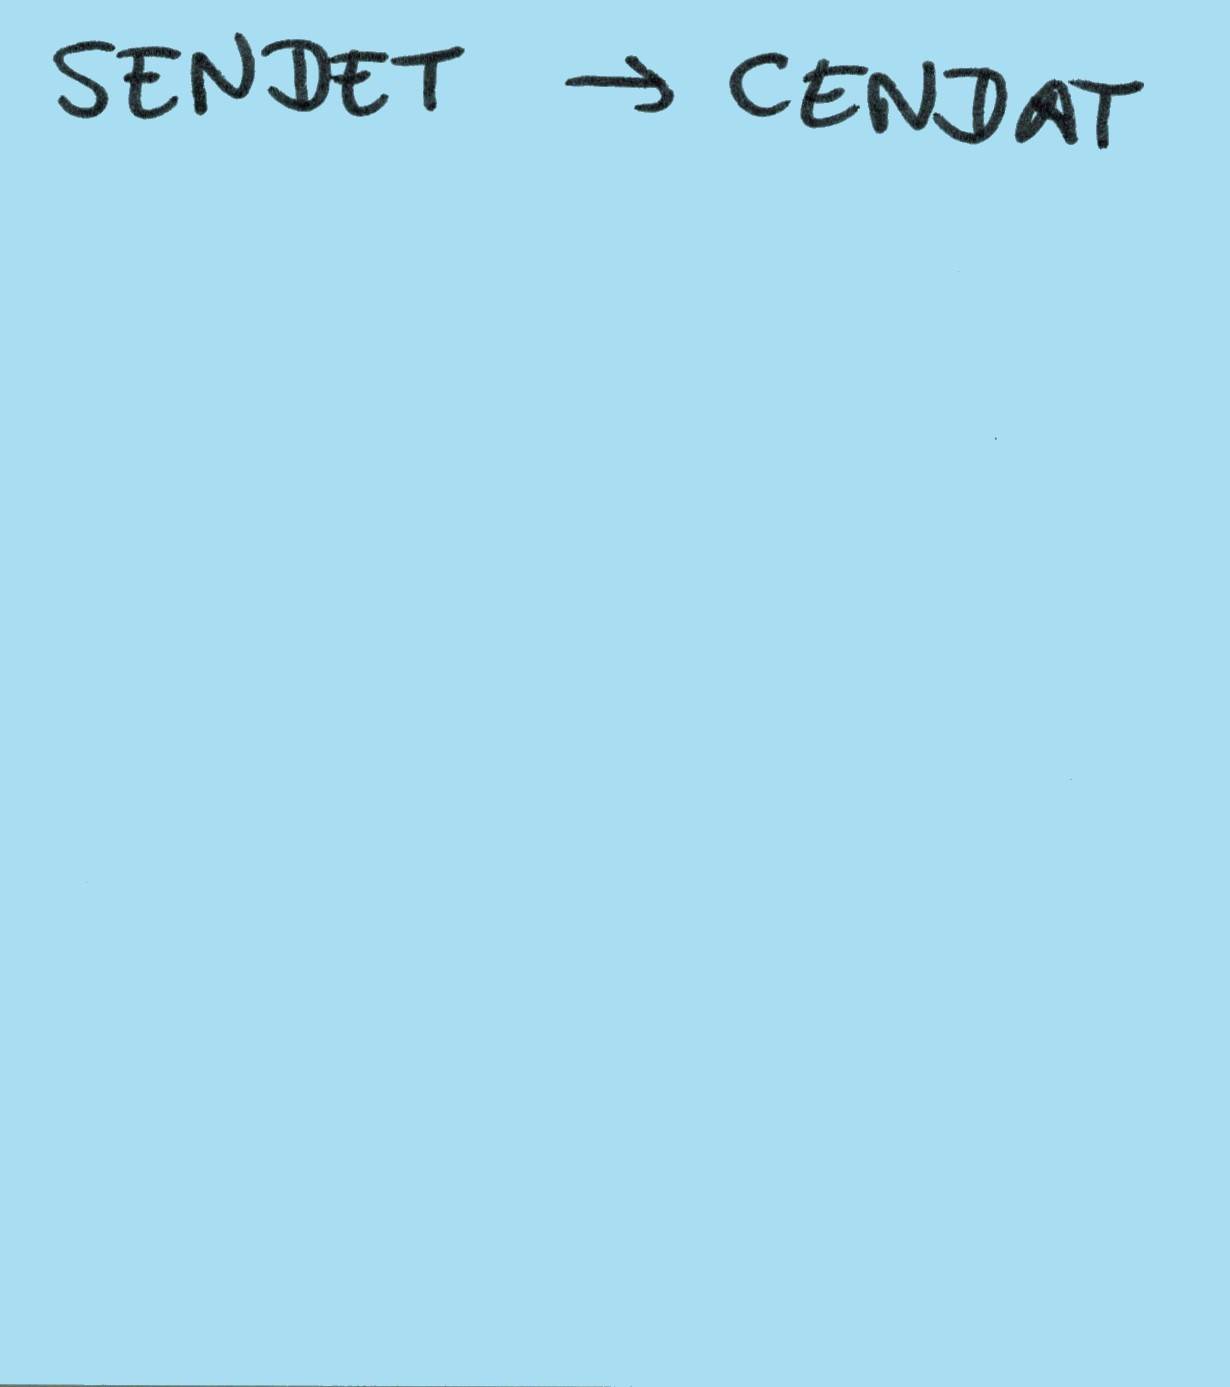 SENDET → CENDAT